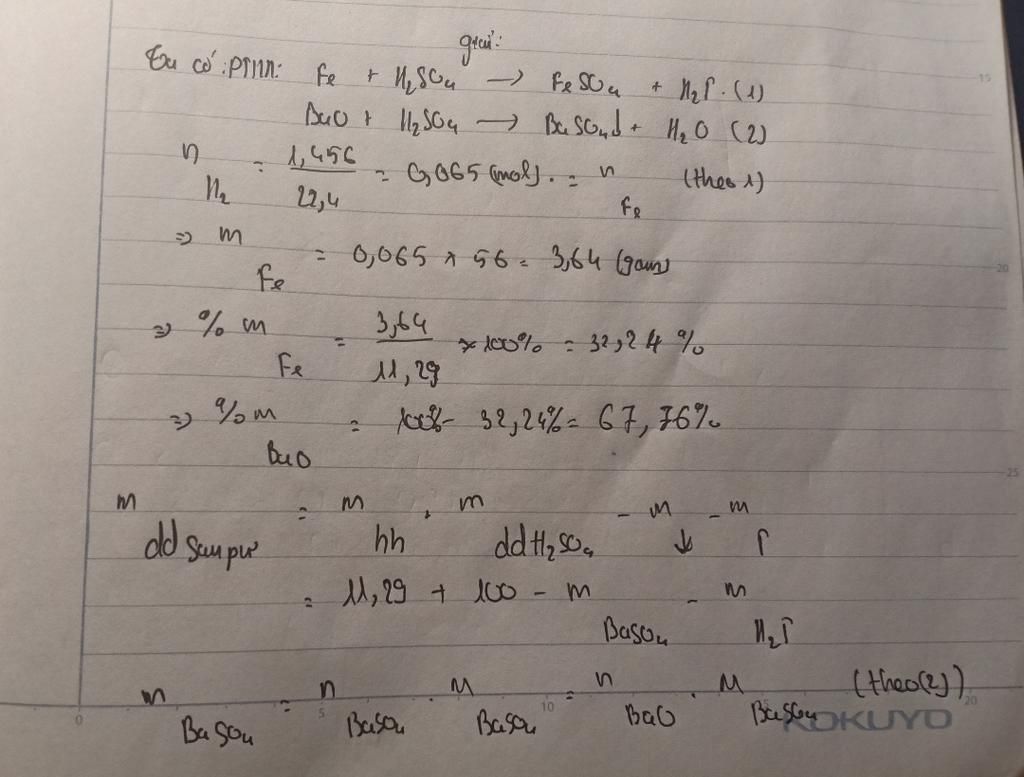 giải:
Ta có: PTHH: Fe + H₂SO₄ → FeSO₄ + H₂↑. (1)
BaO + H₂SO₄ → BaSO₄↓ + H₂O (2)
n H₂ = 1,456 / 22,4 = 0,065 (mol). = n Fe (theo 1)
⇒ m Fe = 0,065 x 56 = 3,64 (gam)
⇒ % m Fe = 3,64 / 11,29 x 100% = 32,24 %
⇒ % m BaO = 100% - 32,24% = 67,76%
m dd sau pư = m hh + m dd H₂SO₄ - m ↓ - m ↑
= 11,29 + 100 - m BaSO₄ - m H₂↑
m BaSO₄ = n BaSO₄ . M BaSO₄ = n BaO . M BaSO₄ (theo(2))
KOKUYO
15
20
25
0 5 10 20